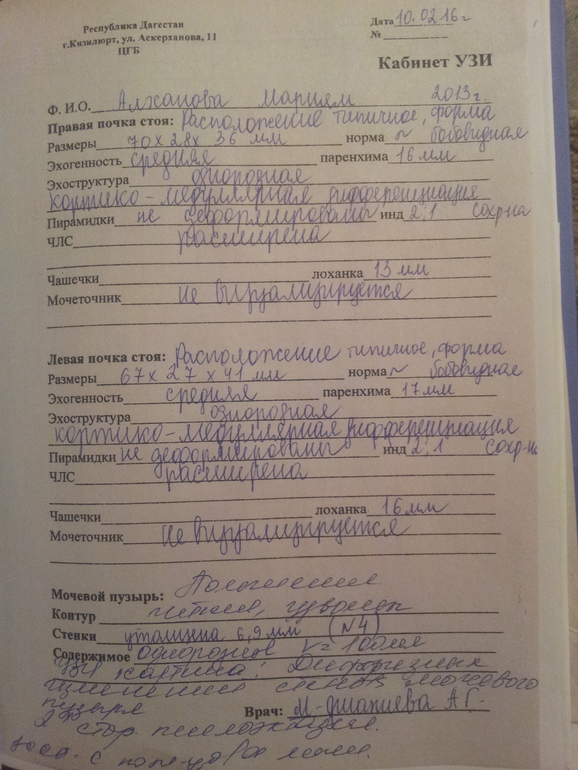 Республика Дагестан
г.Кизилюрт, ул. Аскерханова, 11
ЦГБ
Дата 10.02.16 г
№
Кабинет УЗИ
Ф. И.О. Алханова Мариям 2013 г.
Правая почка стоя: Расположение типичное, форма
Размеры 70 х 28 х 36 мм норма ~ бобовидная
Эхогенность средняя паренхима 16 мм
Эхоструктура однородная
кортико-медуллярная дифференциация
Пирамидки не деформированы инд 2,1 сохр-на
ЧЛС расширена
Чашечки лоханка 13 мм
Мочеточник не визуализируется
Левая почка стоя: Расположение типичное, форма
Размеры 67 х 27 х 41 мм норма ~ бобовидная
Эхогенность средняя паренхима 17 мм
Эхоструктура однородная
кортико-медуллярная дифференциация
Пирамидки не деформированы инд 2,1 сохр-на
ЧЛС расширена
Чашечки лоханка 16 мм
Мочеточник не визуализируется
Мочевой пузырь:
Контур четкий, ровный
Стенки утолщена 6,9 мм (N4)
Содержимое однородное V=
УЗИ картина: Диффузных
изменений стенок мочевого
пузыря
Врач: А.Г.
2х стор. пиелоэктазия.